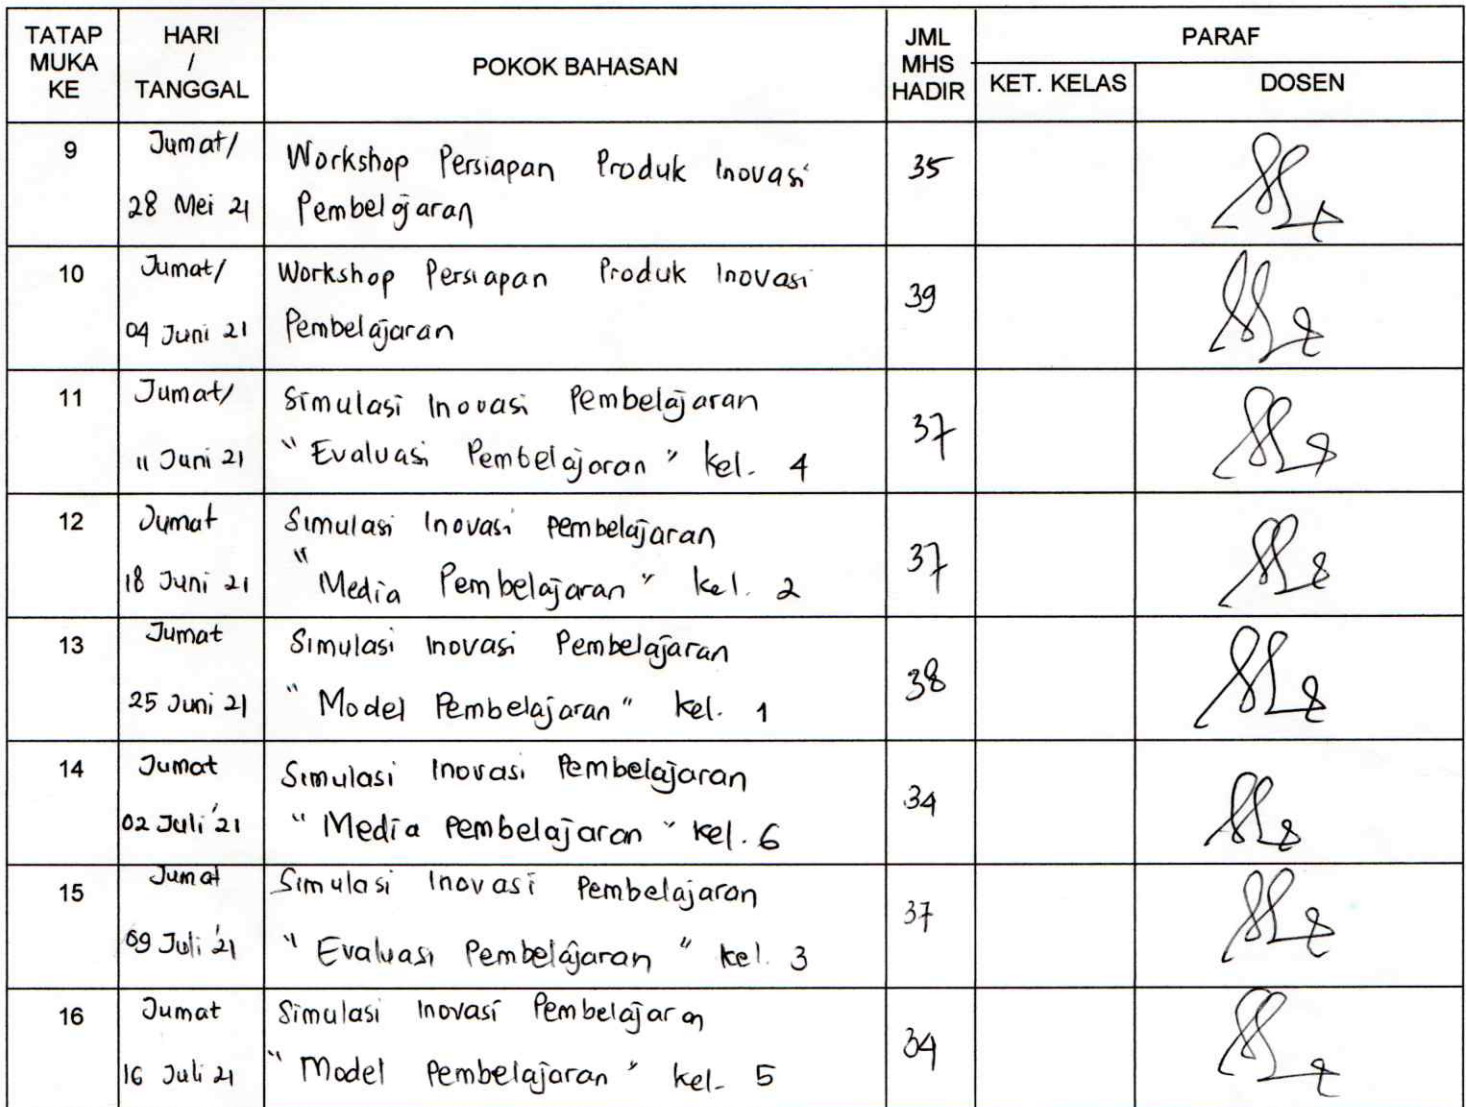 TATAP MUKA KE
HARI / TANGGAL
POKOK BAHASAN
JML MHS HADIR
PARAF
KET. KELAS
DOSEN
9
Jumat/
28 Mei 21
Workshop Persiapan Produk Inovasi
Pembelajaran
35
10
Jumat/
04 Juni 21
Workshop Persiapan Produk Inovasi
Pembelajaran
39
11
Jumat/
11 Juni 21
Simulasi Inovasi Pembelajaran
"Evaluasi Pembelajaran" kel. 4
37
12
Jumat
18 Juni 21
Simulasi Inovasi pembelajaran
"Media Pembelajaran" kel. 2
37
13
Jumat
25 Juni 21
Simulasi Inovasi Pembelajaran
"Model Pembelajaran" kel. 1
38
14
Jumat
02 Juli '21
Simulasi Inovasi Pembelajaran
"Media pembelajaran" kel. 6
34
15
Jumat
09 Juli '21
Simulasi Inovasi Pembelajaran
"Evaluasi Pembelajaran" kel. 3
37
16
Jumat
16 Juli 21
Simulasi Inovasi Pembelajaran
"Model Pembelajaran" kel. 5
34